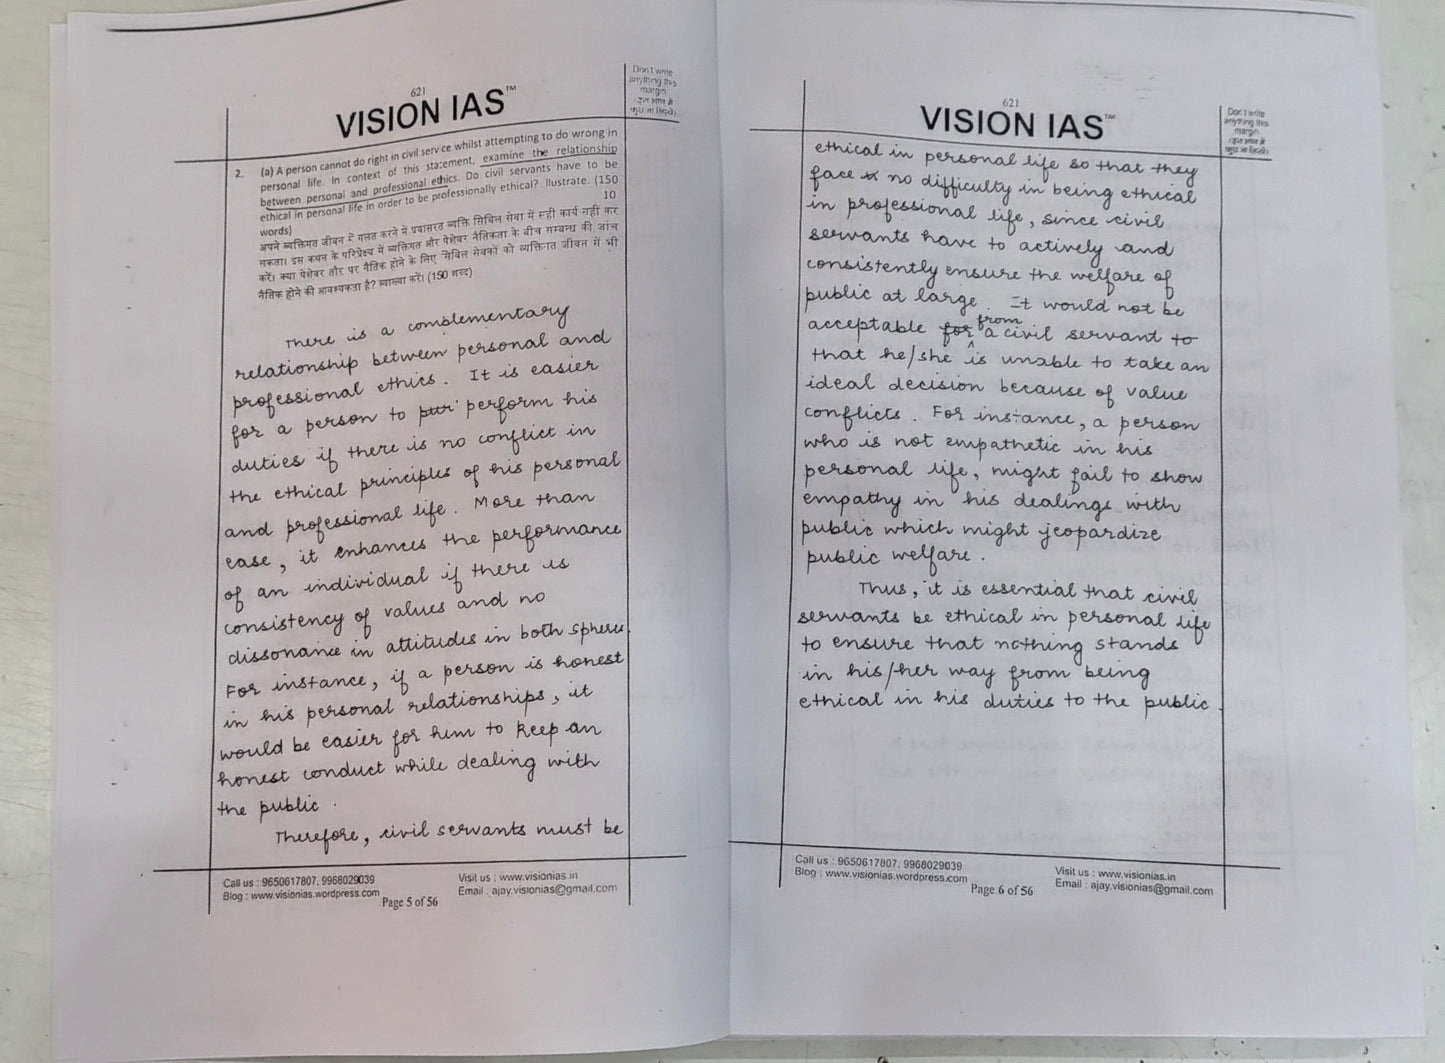 621
VISION IAS™
Don't write
anything this
margin
2. (a) A person cannot do right in civil service whilst attempting to do wrong in
personal life. In context of this statement, examine the relationship
between personal and professional ethics. Do civil servants have to be
ethical in personal life in order to be professionally ethical? Ilustrate. (150
words) 10
अपने व्यक्तिगत जीवन में गलत करने में प्रयासरत व्यक्ति सिविल सेवा में सही कार्य नहीं कर
सकता। इस कथन के परिप्रेक्ष्य में व्यक्तिगत और पेशेवर नैतिकता के बीच सम्बन्ध की जांच
करें। क्या पेशेवर तौर पर नैतिक होने के लिए सिविल सेवकों को व्यक्तिगत जीवन में भी
नैतिक होने की आवश्यकता है? व्याख्या करें। (150 शब्द)
There is a complementary
relationship between personal and
professional ethics. It is easier
for a person to pur perform his
duties if there is no conflict in
the ethical principles of his personal
and professional life. More than
ease, it enhances the performance
of an individual if there is
consistency of values and no
dissonance in attitudes in both spheres.
For instance, if a person is honest
in his personal relationships, it
would be easier for him to keep an
honest conduct while dealing with
the public.
Therefore, civil servants must be
Call us : 9650617807, 9968029039
Visit us : www.visionias.in
Blog : www.visionias.wordpress.com
Email : ajay.visionias@gmail.com
Page 5 of 56
621
VISION IAS™
Don't write
anything this
margin
ethical in personal life so that they
face no difficulty in being ethical
in professional life, since civil
servants have to actively and
consistently ensure the welfare of
public at large. It would not be
acceptable for from a civil servant to
that he/she is unable to take an
ideal decision because of value
conflicts. For instance, a person
who is not empathetic in his
personal life, might fail to show
empathy in his dealings with
public which might jeopardize
public welfare.
Thus, it is essential that civil
servants be ethical in personal life
to ensure that nothing stands
in his/her way from being
ethical in his duties to the public.
Call us : 9650617807, 9968029039
Visit us : www.visionias.in
Blog : www.visionias.wordpress.com
Email : ajay.visionias@gmail.com
Page 6 of 56